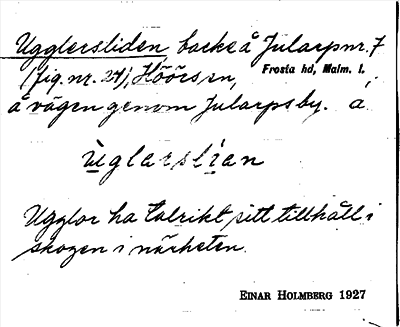 Ugglersliden backe å Jularp nr. 7
(fig. nr. 24), Höörs sn, Frosta hd, Malm. l.
å vägen genom Jularps by. å
ùglarslìan
Ugglor ha talrikt sitt tillhåll i
skogen i närheten.
EINAR HOLMBERG 1927